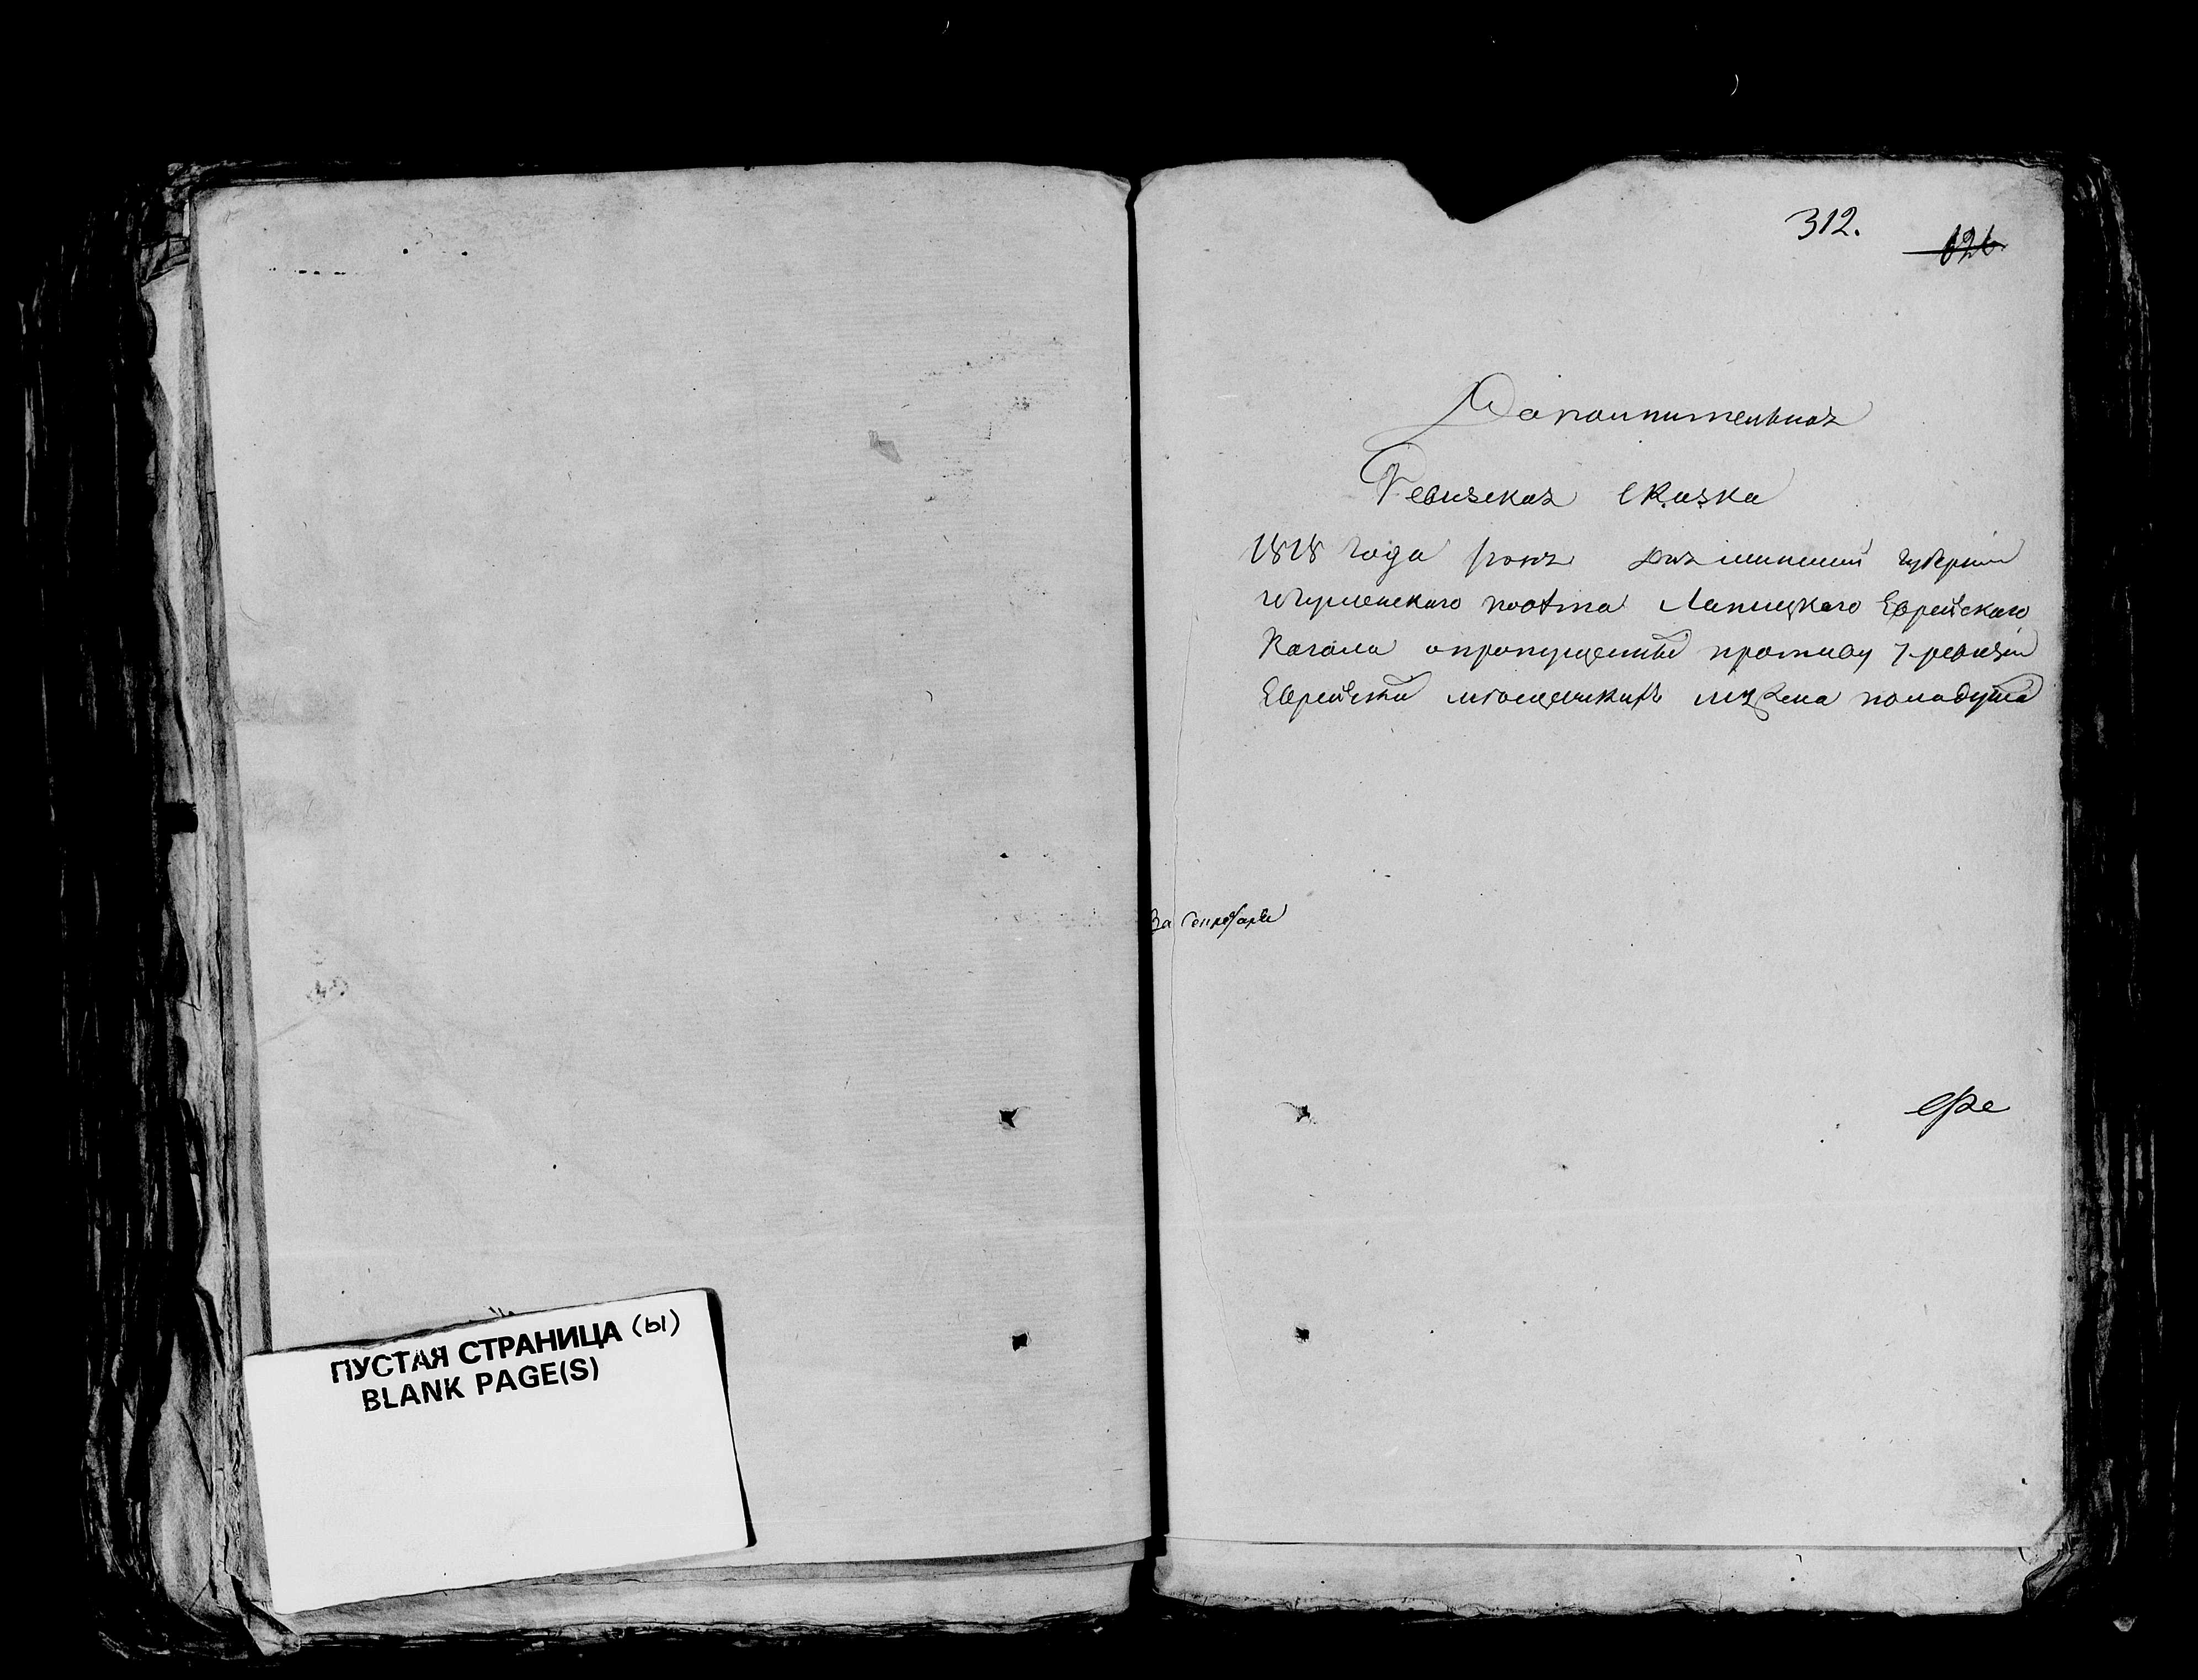 312.
626
Дапольнительная
Ревизская сказка
1818 года Минской губерний
игуменского повѣта Лапицкого Еврейского
Кагала опропущенныхъ противу 7. ревизіи
Еврейской мужеска пола душъ
За Секретаря
ПУСТАЯ СТРАНИЦА (Ы)
BLANK PAGE(S)